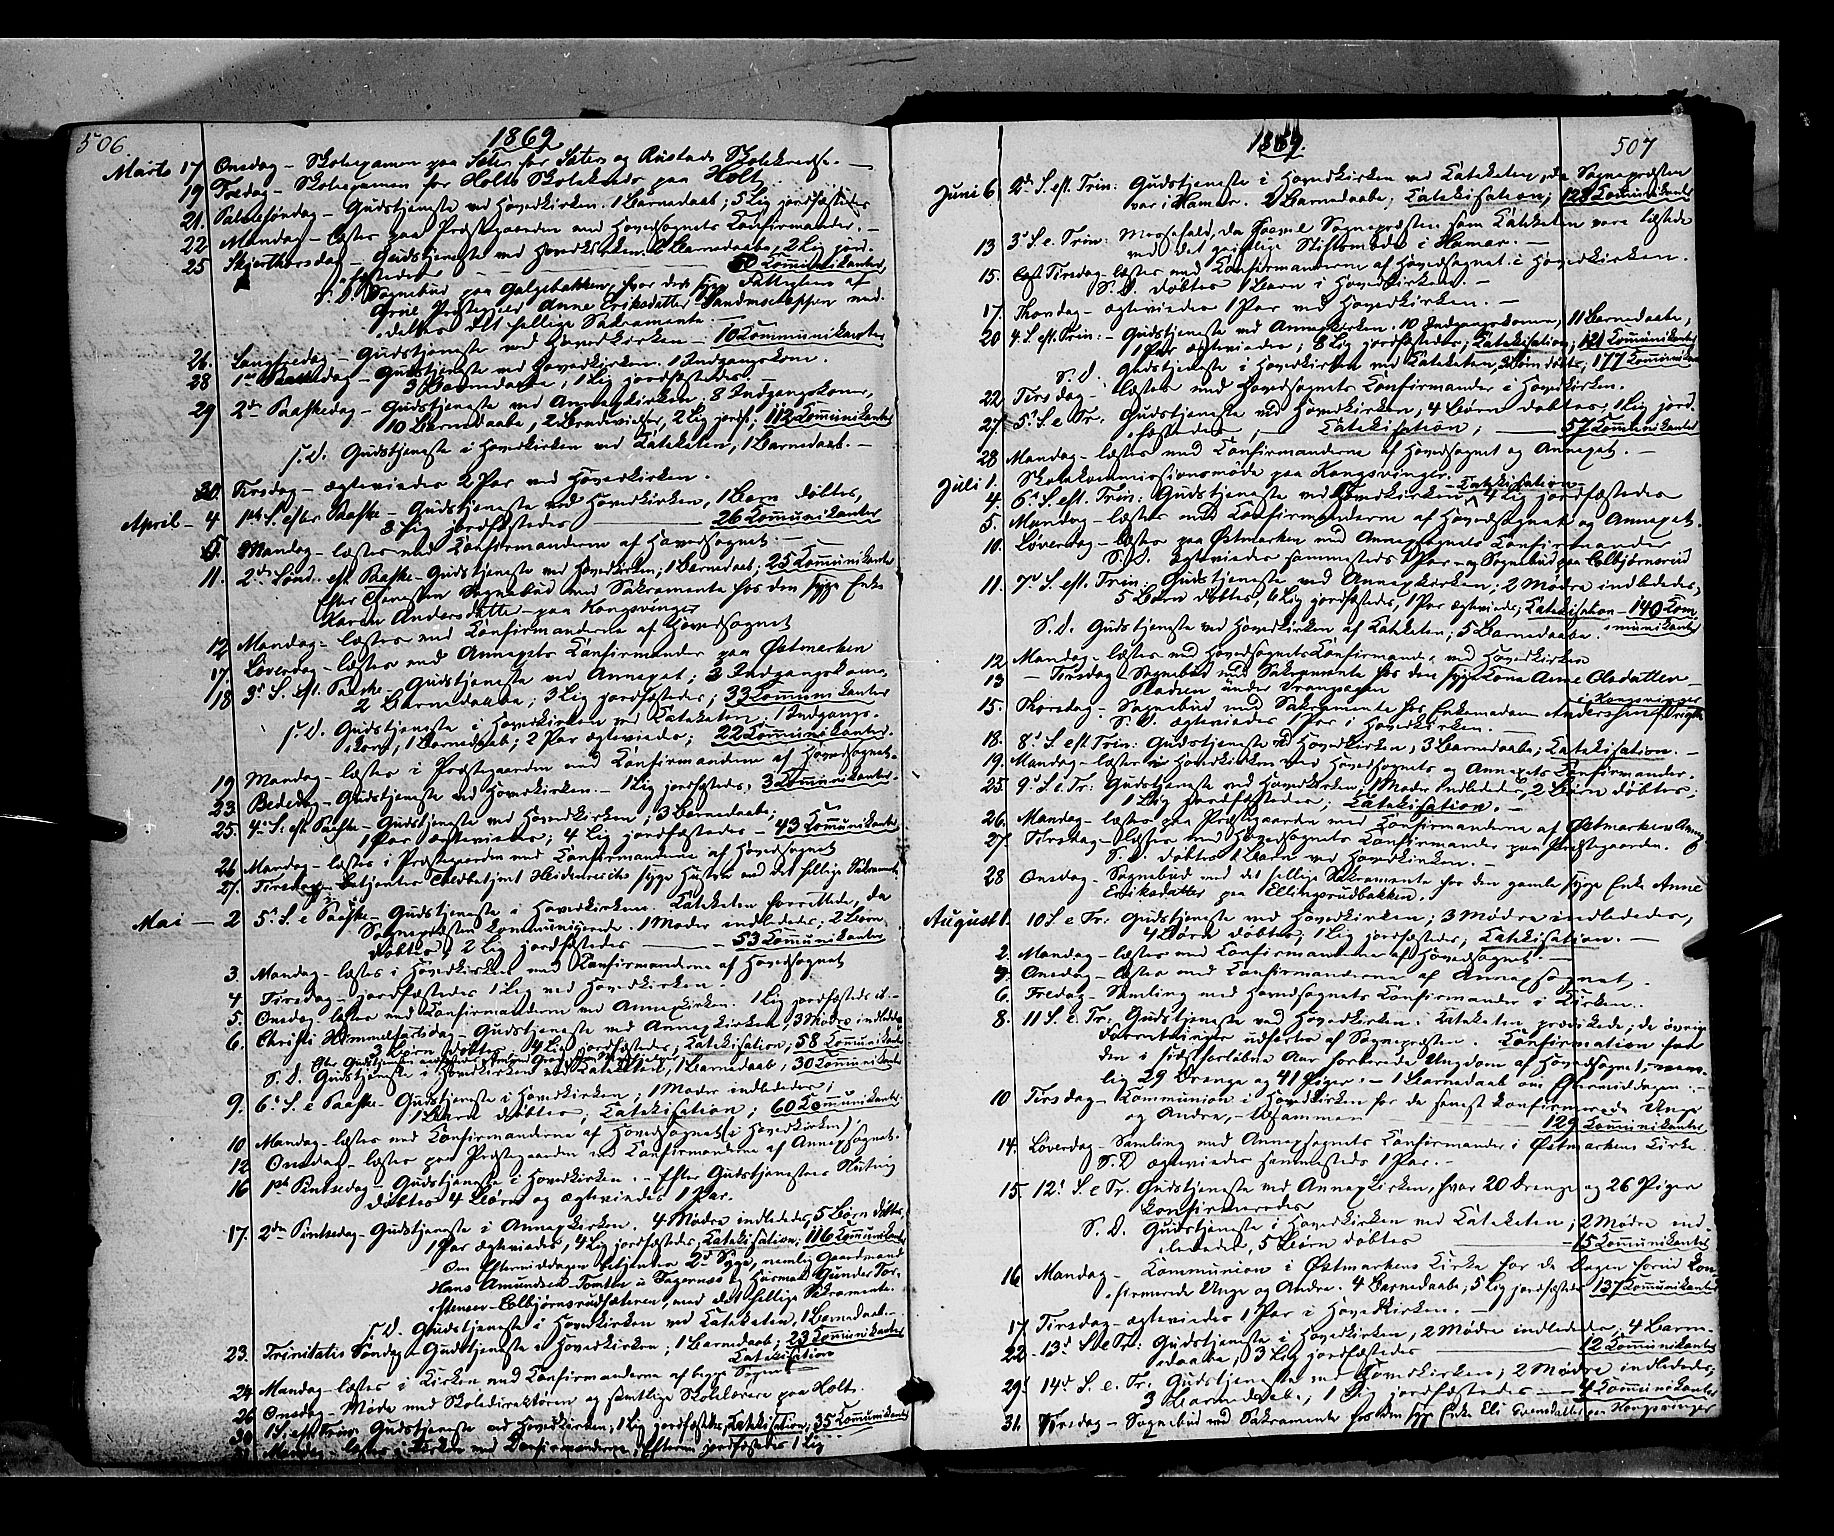 506
1869
Marts 17 Onsdag – Skoleexamen paa Sæter for Sæters og Rustads Skolekreds. –
19 Fredag – Skoleexamen for Holts Skolekreds paa Holt.
21. Palmesøndag – Gudstjeneste ved Hovedkirken. 1 Barnedaab; 5 Lig jordfæstedes
22 Mandag – læstes paa Præstegaarden med Hovedsognets Confirmander. –
25 Skjærthorsdag – Gudstjeneste ved Hovedkirken. 2 Barnedaabe, 2 Lig jord-
fæstedes – 50 Kommunikanter,
S.D. Sognebud paa Galgebakken, hvor den syge Fattiglem af
Præstegjeld Anne Eriksdatter Sandmoeteppen med-
deltes det hellige Sakramente.
26. Langfredag – Gudstjeneste ved Hovedkirken – 10 Kommunikanter
28 1ste Paaskedag – Gudstjeneste ved Hovedkirken. 1 Indgangskone.
3 Barnedaabe, 1 Lig jordfæstedes. –
29 2den Paaskedag – Gudstjeneste ved Annexkirken; 8 Indgangskoner,
10 Barnedaabe, 2 Brudevielser, 2 Lig jordf.; 112 Kommunikanter
S.D. Gudstjeneste i Hovedkirken ved Kateketen, 1 Barnedaab. –
30. Tirsdag – ægteviedes 2 Par ved Hovedkirken.
April – 4 1ste S. efter Paaske – Gudstjeneste ved Hovedkirken, 1 Barn døbtes,
3 Lig jordfæstedes – 26 Kommunikanter
5. Mandag – læstes med Confirmanderne af Hovedsognet. –
11. 2den Sønd. eft Paaske – Gudstjeneste ved Hovedkirken; 1 Barnedaab; 25 Kommunikanter
Efter Tjenesten Sognebud med Sakramente hos den syge Enke
Karen Andersdatter paa Kongsvinger
12 Mandag – læstes med Confirmanderne af Hovedsognet
17. Løverdag – læstes med Annexets Confirmander paa Østmarken
18 3die S. eft. Paaske – Gudstjeneste ved Annexet; 3 Indgangskoner,
2 Barnedaabe; 3 Lig jordfæstedes; 33 Kommunikanter
S.D. Gudstjeneste i Hovedkirken ved Kateketen, 1 Indgangs-
kone, 1 Barnedaab; 2 Par ægteviedes; 22 Kommunikanter.
19 Mandag – læstes i Præstegaarden med Confirmanderne af Hovedsognet.
23. Bededag – Gudstjeneste ved Hovedkirken. – 1 Lig jordfæstedes, 3 Kommunikanter.
25. 4de S. eft. Paaske – Gudstjeneste ved Hovedkirken; 3 Barnedaabe;
1 Par ægteviedes; 4 Lig jordfæstedes – 43 Kommunikanter
26 Mandag – læstes i Præstegaarden med Confirmanderne af Hovedsognet
27. Tirsdag – betjentes Toldbetjent syge Hustru med det hellige Sakramente
Mai – 2 5te S. e Paaske – Gudstjeneste i Hovedkirken. Kateketen forrettede, da
Sognepræsten kommunicerede. 1 Moder indlededes; 2 Børn
døbtes, 2 Lig jordfæstedes – 53 Kommunikanter
3. Mandag – læstes i Hovedkirken med Konfirmanderne af Hovedsognet
4. Tirsdag – jordfæstedes 1 Lig ved Hovedkirken.
5. Onsdag – læstes med Confirmanderne ved Annexkirken. 1 Lig jordfæstedes
6. Christi Himmelfartsdag, Gudstjeneste ved Annexkirken, 3 Mødre indlededes
3 Børn døbtes, 4 Lig jordfæstedes; Katekisation; 58 Kommunikanter
S.D. Gudstjeneste i Hovedkirken ved Kateketen, 1 Barnedaab, 30 Kommunikanter
9. 6te S. e Paaske – Gudstjeneste ved Hovedkirken; 1 Moder indlededes;
1 Barn døbtes, Katekisation; 60 Kommunikanter
10 Mandag – læstes med Confirmanderne af Hovedsognet (i Hovedkirken)
12 Onsdag – læstes paa Præstegaarden med Confirmanderne af Annexsognet.
16 1ste Pintsedag – Gudstjeneste i Hovedkirken. – Efter Gudstjenestens Slutning
døbtes 4 Børn og ægteviedes 1 Par.
17. 2den Pintsedag – Gudstjeneste i Annexkirken. 4 Mødre indlededes, 5 Børn døbtes
1 Par ægteviedes, 4 Lig jordfæstedes; Katekisation; 116 Kommunikanter
Om Eftermiddagen betjentes 2de Syge, nemlig Gaardmand
Hans Amundsen Tomter i og Husmand Gunder Tor-
stensen – Colbjørnsrudsæteren, med det hellige Sakramente.
S.D. Gudstjeneste i Hovedkirken ved Kateketen, 1 Barnedaab. –
23. Trinitatis Søndag – Gudstjeneste i Hovedkirken; 1 Barnedaab; 23 Kommunikanter
Katekisation
24 Mandag – læstes i Kirken med Confirmanderne af begge Sogne
26 Onsdag – Møde med Skoledirektøren og samtlige Skolelærere paa Holt.
30 1 S. eft Trin: Gudstjeneste ved Hovedkirken, 1 Lig jordfæstedes, Katekisation, 35 Kommunikanter
31 Mandag – læstes i Kirken med Confirmanderne, jordfæstedes 1 Lig
1869.
507
Juni 6 2den S. eft. Trin: Gudstjeneste i Hovedkirken ved Kateketen, da Sognepræsten
var i Hamar. 2 Barnedaabe; Katekisation; 128 Kommunikanter
13 3die S. e. Trin: Messefald, da saavel Sognepræsten som Kateketen vare tilstede
ved det geistlige Stiftsmøde i Hamar. –
15. Tirsdag – læstes med Confirmanderne af Hovedsognet i Hovedkirken.
S.D. døbtes 1 Barn i Hovedkirken. –
17. Thorsdag – ægteviedes 1 Par ved Hovedkirken. –
20 4. S. eft. Trin: – Gudstjeneste ved Annexkirken. 10 Indgangskoner, 11 Barnedaabe,
1 Par ægteviedes; 8 Lig jordfæstedes; Katekisation; 121 Kommunikanter
S.D. Gudstjeneste i Hovedkirken ved Kateketen, Børn døbtes; 177 Kommunikanter
22 Tirsdag – læstes med Hovedsognets Confirmander i Hovedkirken.
27. 5te S. e Tr. Gudstjeneste ved Hovedkirken, 4 Børn døbtes, 1 Lig jord-
fæstedes, – Katekisation; – 57 Kommunikanter
28 Mandag – læstes med Confirmanderne af Hovedsognet og Annexet. –
Juli 1. Skolekommissionsmøde paa Kongsvinger.
4 6te S. eft. Trin: Gudstjeneste ved Hovedkirken. Katekisation – 4 Lig jordfæstedes
5. Mandag – læstes med Confirmanderne af Hovedsognet og Annexet.
10. Løverdag – læstes paa Østmarken med Annexsognets Confirmander
S.D. ægteviedes sammesteds 1 Par – og Sognebud paa Colbjørnsrud
11. 7de S. eft. Trin: Gudstjeneste ved Annexkirken; 2 Mødre indlededes,
5 Børn døbtes, 6 Lig jordfæstedes, 1 Par ægteviedes; Katekisation – 140 Kom-
munikanter
S.D. Gudstjeneste ved Hovedkirken af Kateketen; 5 Barnedaabe.
12 Mandag – læstes med Hovedsognets Confirmander ved Hovedkirken
13 – Tirsdag – Sognebud med Sakramente hos den syge Kone Anne Olsdatter –
Pladsen under Vrangagen
15. Thorsdag – Sognebud med Sakramente hos Enkemadam i Kongsvinger
S.D. ægteviedes 1 Par i Hovedkirken. –
18. 8de S. eft Trin: Gudstjeneste ved Hovedkirken, 3 Barnedaabe; Katekisation. –
19. Mandag – læstes i Hovedkirken med Hovedsognets og Annexets Confirmander.
25. 9de S. e Tr: Gudstjeneste ved Hovedkirken, 1 Moder indlededes, 2 Børn døbtes;
1 Lig jordfæstedes; Katekisation. –
26. Mandag – læstes paa Præstegaarden med Confirmanderne af Østmarkens Annex
27. Tirsdag – læstes med Hovedsognets Confirmander paa Præstegaarden.
S.D. døbtes 1 Barn ved Hovedkirken. –
28 Onsdag – Sognebud med det hellige Sakramente hos den gamle syge Enke Anne
Eriksdatter paa Ellingsrudbakken.
August 1. 10 S. e Tr: Gudstjeneste ved Hovedkirken; 3 Mødre indlededes,
4 Børn døbtes; 1 Lig jordfæstedes; Katekisation. –
2. Mandag – læstes med Confirmanderne af Hovedsognet. –
4. Onsdag – læstes med Confirmanderne af Annexsognet.
6. Fredag – Samling med Hovedsognets Confirmander i Kirken.
8. 11 S. e. Tr: Gudstjeneste ved Hovedkirken. Kateketen prædikede; de øvrige
Forretninger udførtes af Sognepræsten. Konfirmation paa
den i sidst forløbne Aar forberedte Ungdom af Hovedsognet, nem-
lig 29 Drenge og 41 Piger. – 1 Barnedaab om Eftermiddagen. –
10 Tirsdag – Kommunion i Hovedkirken for de senest konfirmerede Unge
og Andre, – tilsammen – 129 Kommunikanter
14. Løverdag – Samling med Annexsognets Confirmander i Østmarkens Kirke.
S.D ægteviedes sammesteds 1 Par. –
15. 12te S. e Tr. Gudstjeneste ved Annexkirken, hvor 20 Drenge og 26 Piger
konfirmeredes
S.D. Gudstjeneste i Hovedkirken ved Kateketen, 2 Mødre ind-
lededes, 5 Børn døbtes – 15 Kommunikanter
16 Mandag – Kommunion i Østmarkens Kirke for de Dagen forud kon-
firmerede Unge og Andre. 4 Barnedaabe, 5 Lig jordfæstedes 137 Kommunikanter
17. Tirsdag – ægteviedes 1 Par i Hovedkirken. –
22 13de S. e Tr: Gudstjeneste i Hovedkirken, 2 Mødre indlededes, 4 Barne-
daabe, 3 Lig jordfæstedes – 12 Kommunikanter
29 14de S. e. Tr. Gudstjeneste ved Hovedkirken; 2 Mødre indlededes,
3 Barnedaab., 1 Lig jordfæstedes – 4 Kommunikanter
31. Tirsdag – Sognebud med Sakramente hos den syge Enke Eli Svendsdatter paa Kongsvinger